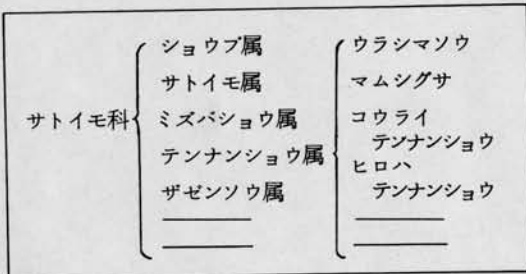 サトイモ科
ショウブ属
サトイモ属
ミズバショウ属
テンナンショウ属
ザゼンソウ属
ウラシマソウ
マムシグサ
コウライ
テンナンショウ
ヒロハ
テンナンショウ